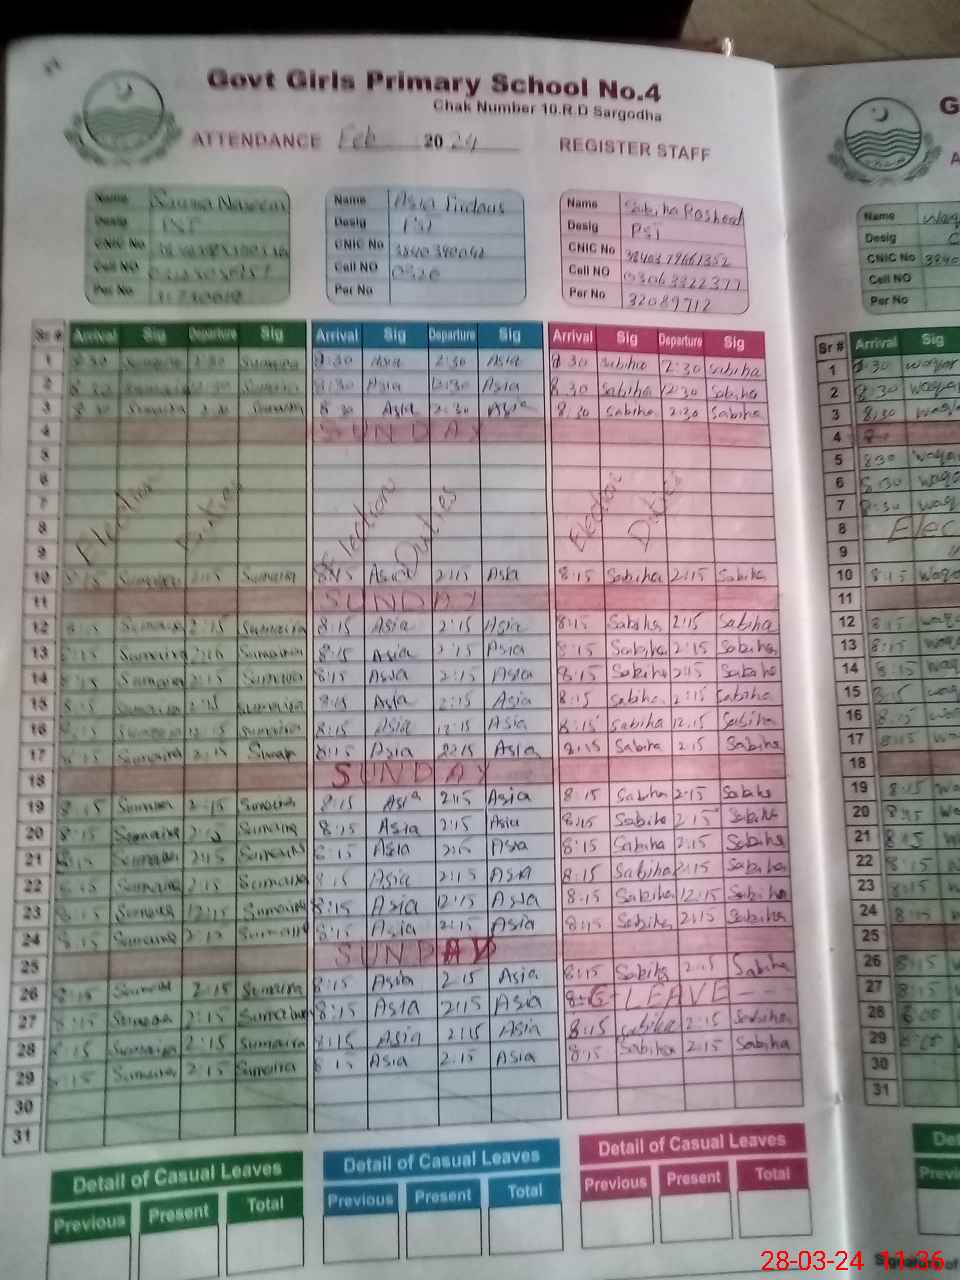 Govt Girls Primary School No.4
Chak Number 10.R.D Sargodha
ATTENDANCE Feb 2024 REGISTER STAFF
Name Name Asia Firdous Name Sabiha Rasheed
Desig PST Desig PST Desig PST
CNIC No CNIC No CNIC No
Cell NO Cell NO 0320 Cell NO 03063322377
Per No Per No Per No 32089712
Sr # Arrival Sig Departure Sig Arrival Sig Departure Sig Arrival Sig Departure Sig
1 8:30 Sumaira 2:30 Sumaira 8:30 Asia 2:30 Asia 8:30 Sabiha 2:30 Sabiha
2 8:30 Sumaira 12:30 Sumaira 8:30 Asia 12:30 Asia 8:30 Sabiha 12:30 Sabiha
3 8:30 Sumaira 2:30 Sumaira 8:30 Asia 2:30 Asia 8:30 Sabiha 2:30 Sabiha
4 SUNDAY
5
6
7 Election Duties Election Duties Election Duties
8
9
10 8:15 Sumaira 2:15 Sumaira 8:15 Asia 2:15 Asia 8:15 Sabiha 2:15 Sabiha
11 SUNDAY
12 8:15 Sumaira 2:15 Sumaira 8:15 Asia 2:15 Asia 8:15 Sabiha 2:15 Sabiha
13 8:15 Sumaira Sumaira 8:15 Asia 2:15 Asia 8:15 Sabiha 2:15 Sabiha
14 8:15 Sumaira 2:15 Sumaira 8:15 Asia 2:15 Asia 8:15 Sabiha 2:15 Sabiha
15 8:15 Sumaira 2:15 Sumaira 8:15 Asia 2:15 Asia 8:15 Sabiha 2:15 Sabiha
16 8:15 Sumaira 12:15 Sumaira 8:15 Asia 12:15 Asia 8:15 Sabiha 12:15 Sabiha
17 8:15 Sumaira 2:15 8:15 Asia Asia 8:15 Sabiha 2:15 Sabiha
18 SUNDAY
19 8:15 Sumaira 2:15 Sumaira 8:15 Asia 2:15 Asia 8:15 Sabiha 2:15 Sabiha
20 8:15 Sumaira Sumaira 8:15 Asia 2:15 Asia 8:15 Sabiha 2:15 Sabiha
21 8:15 Sumaira 2:15 Sumaira 8:15 Asia Asia 8:15 Sabiha 2:15 Sabiha
22 8:15 Sumaira 2:15 Sumaira 8:15 Asia 2:15 Asia 8:15 Sabiha 2:15 Sabiha
23 8:15 Sumaira 12:15 Sumaira 8:15 Asia 12:15 Asia 8:15 Sabiha 12:15 Sabiha
24 8:15 Sumaira 2:15 Sumaira 8:15 Asia 2:15 Asia 8:15 Sabiha 2:15 Sabiha
25 SUNDAY
26 8:15 Sumaira 2:15 Sumaira 8:15 Asia 2:15 Asia 8:15 Sabiha 2:15 Sabiha
27 8:15 Sumaira 2:15 Sumaira 8:15 Asia 2:15 Asia LEAVE
28 8:15 Sumaira 2:15 Sumaira 8:15 Asia 2:15 Asia 8:15 Sabiha 2:15 Sabiha
29 8:15 Sumaira 2:15 Sumaira 8:15 Asia 2:15 Asia 8:15 Sabiha 2:15 Sabiha
30
31
Detail of Casual Leaves Detail of Casual Leaves Detail of Casual Leaves
Previous Present Total Previous Present Total Previous Present Total
G
A
Name
Desig
CNIC No 3840
Cell NO
Per No
Sr # Arrival Sig
1 8:30
2 8:30
3 8:30
4
5 8:30
6 8:30
7 8:30
8 Elec
9
10 8:15
11
12 8:15
13 8:15
14 8:15
15 8:15
16 8:15
17 8:15
18
19 8:15
20 8:15
21 8:15
22 8:15
23 8:15
24 8:15
25
26 8:15
27 8:15
28 8:00
29
30
31
Det
Previo
28-03-24 11:36